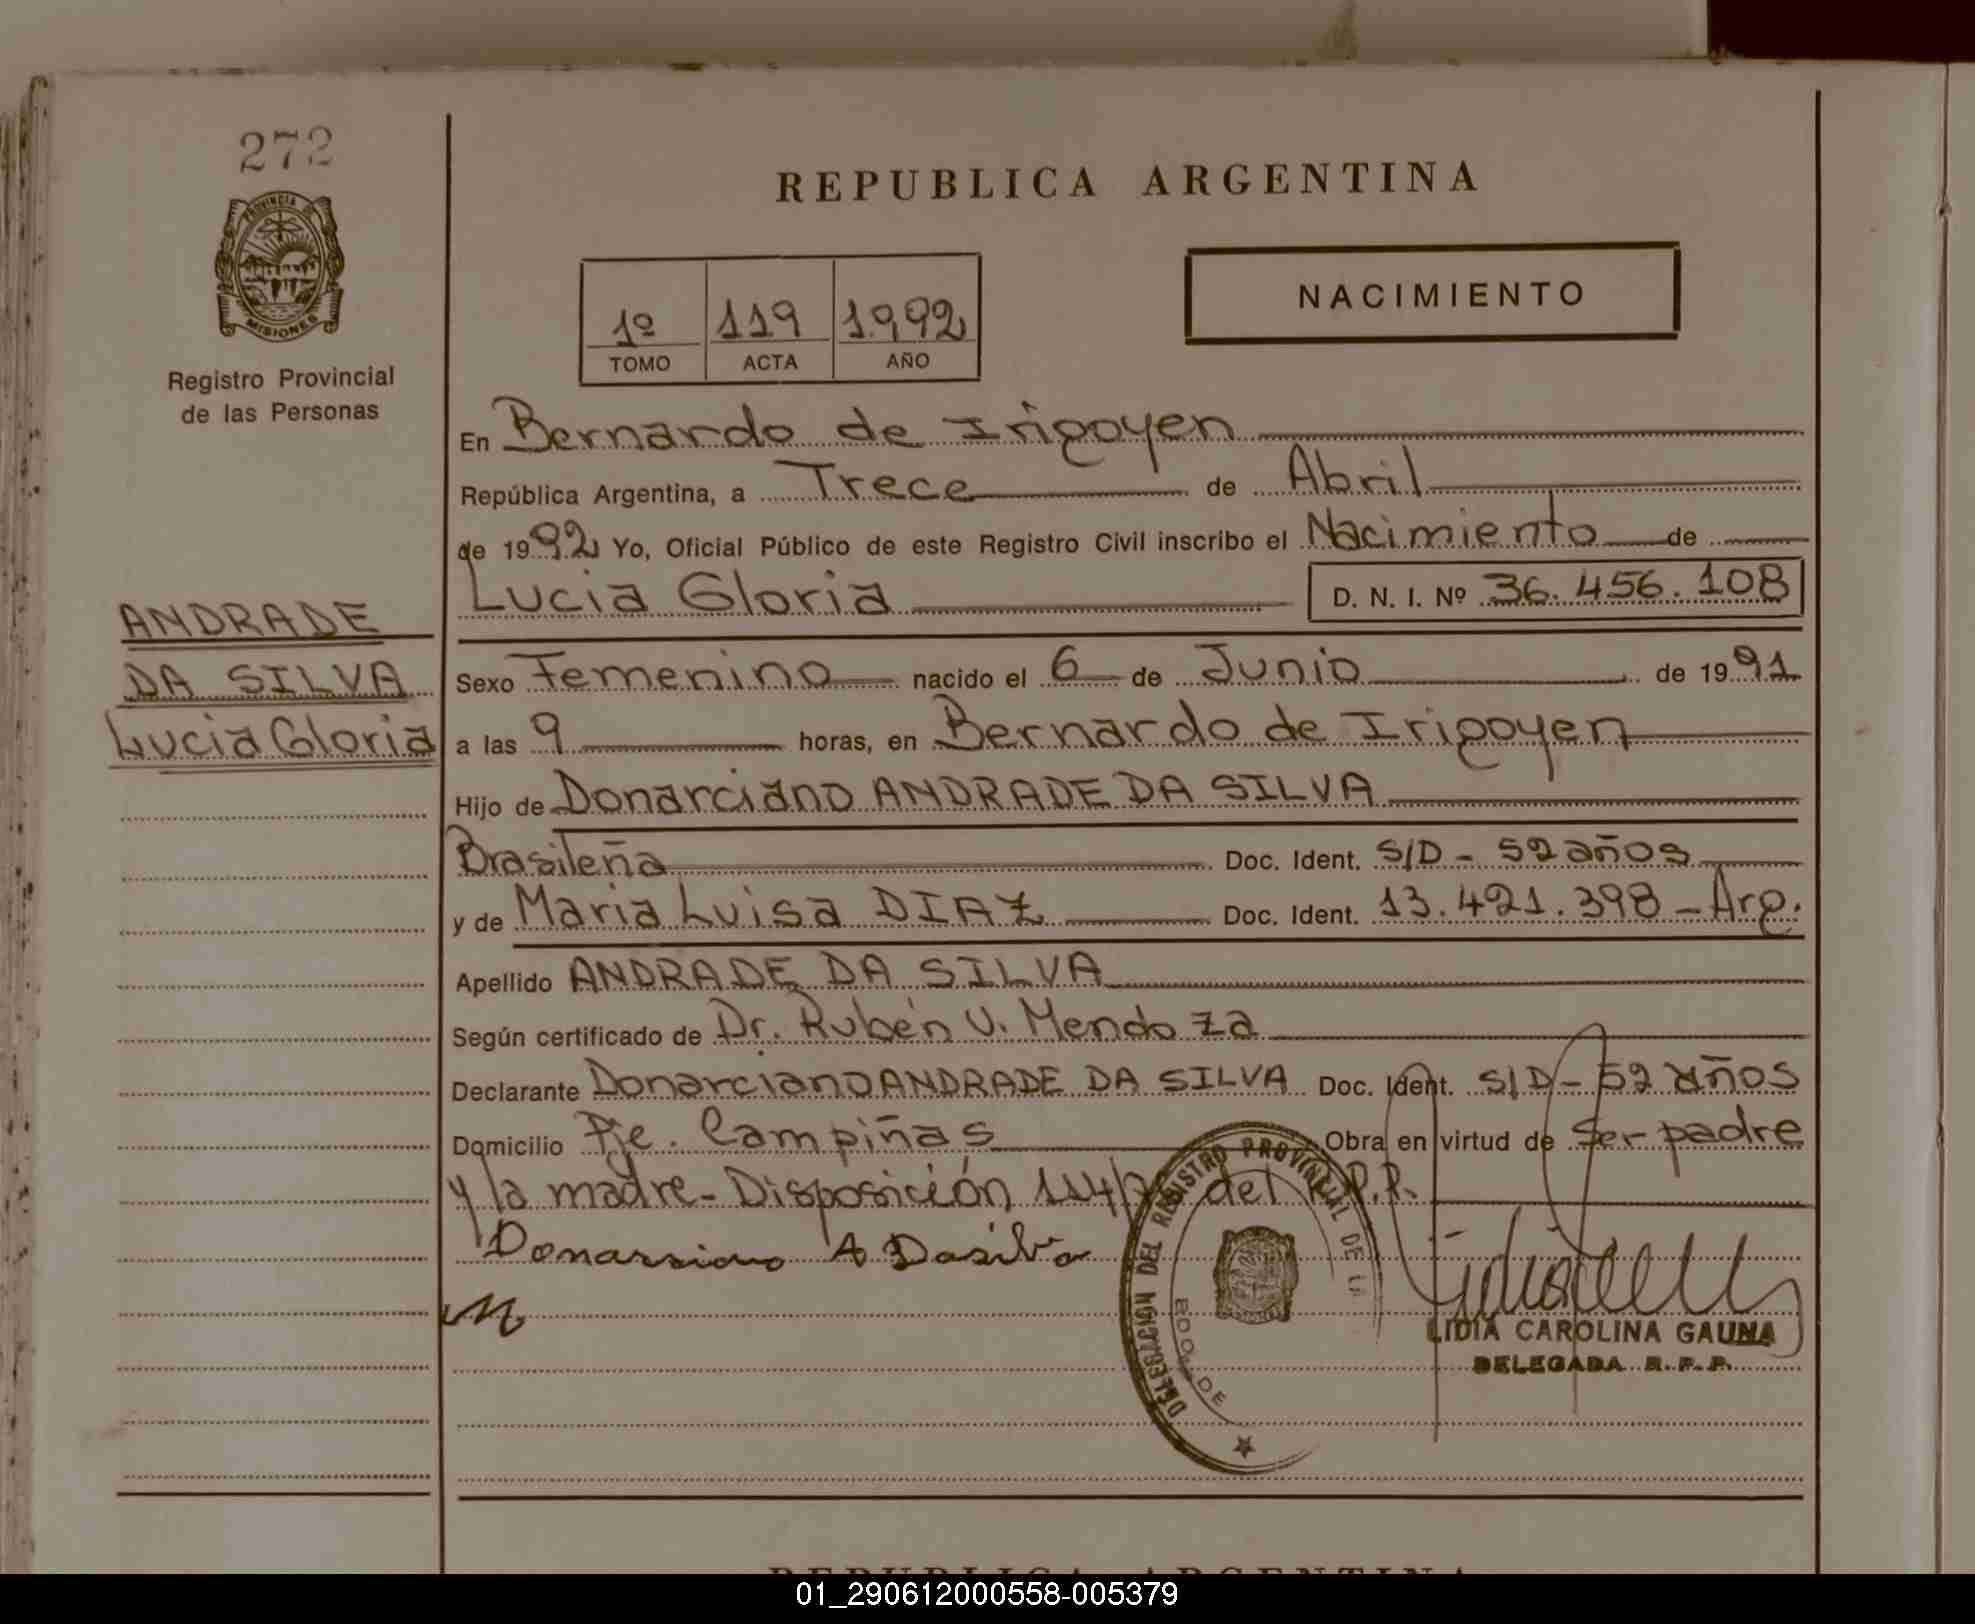 272
PROVINCIA DE
MISIONES
Registro Provincial
de las Personas
ANDRADE
DA SILVA
Lucia Gloria
REPUBLICA ARGENTINA
1º 119 1992
TOMO ACTA AÑO
NACIMIENTO
En Bernardo de Irigoyen
República Argentina, a Trece de Abril
de 1992 Yo, Oficial Público de este Registro Civil inscribo el Nacimiento de
Lucia Gloria D. N. I. Nº 36.456.108
Sexo Femenino nacido el 6 de Junio de 1991
a las 9 horas, en Bernardo de Irigoyen
Hijo de Donarciano ANDRADE DA SILVA
Brasileña Doc. Ident. S/D - 52 años
y de Maria Luisa DIAZ Doc. Ident. 13.421.398 - Arg.
Apellido ANDRADE DA SILVA
Según certificado de Dr. Rubén V. Mendoza
Declarante Donarciano ANDRADE DA SILVA Doc. Ident. S/D - 52 años
Domicilio Pje. Campiñas Obra en virtud de Ser padre
y la madre - Disposición del R.P.P.
Donarsiano A Dasilva
DELEGACION DEL REGISTRO PROVINCIAL DE
LIDIA CAROLINA GAUNA
DELEGADA R.P.P.
REPUBLICA ARGENTINA
01_290612000558-005379